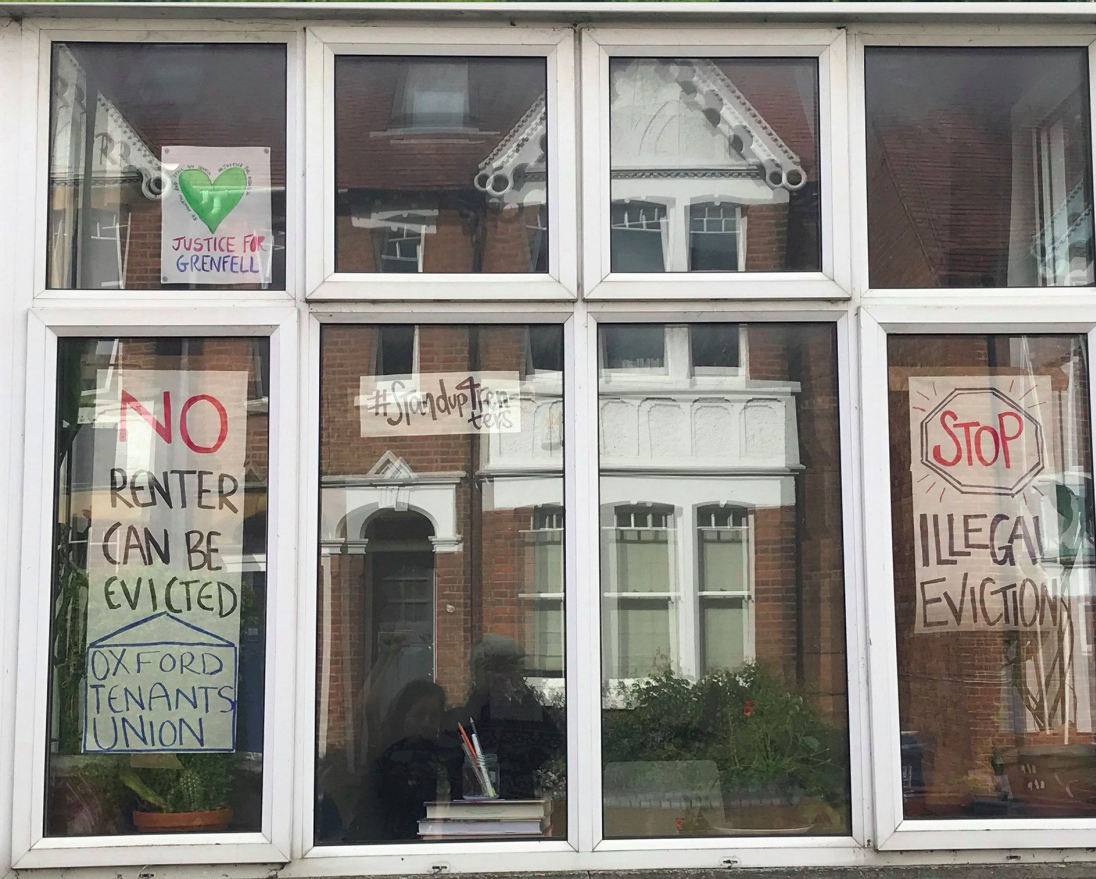 JUSTICE FOR
GRENFELL
NO
RENTER
CAN BE
EVICTED
OXFORD
TENANTS
UNION
#Standup4ren-
ters
STOP
ILLEGAL
EVICTION